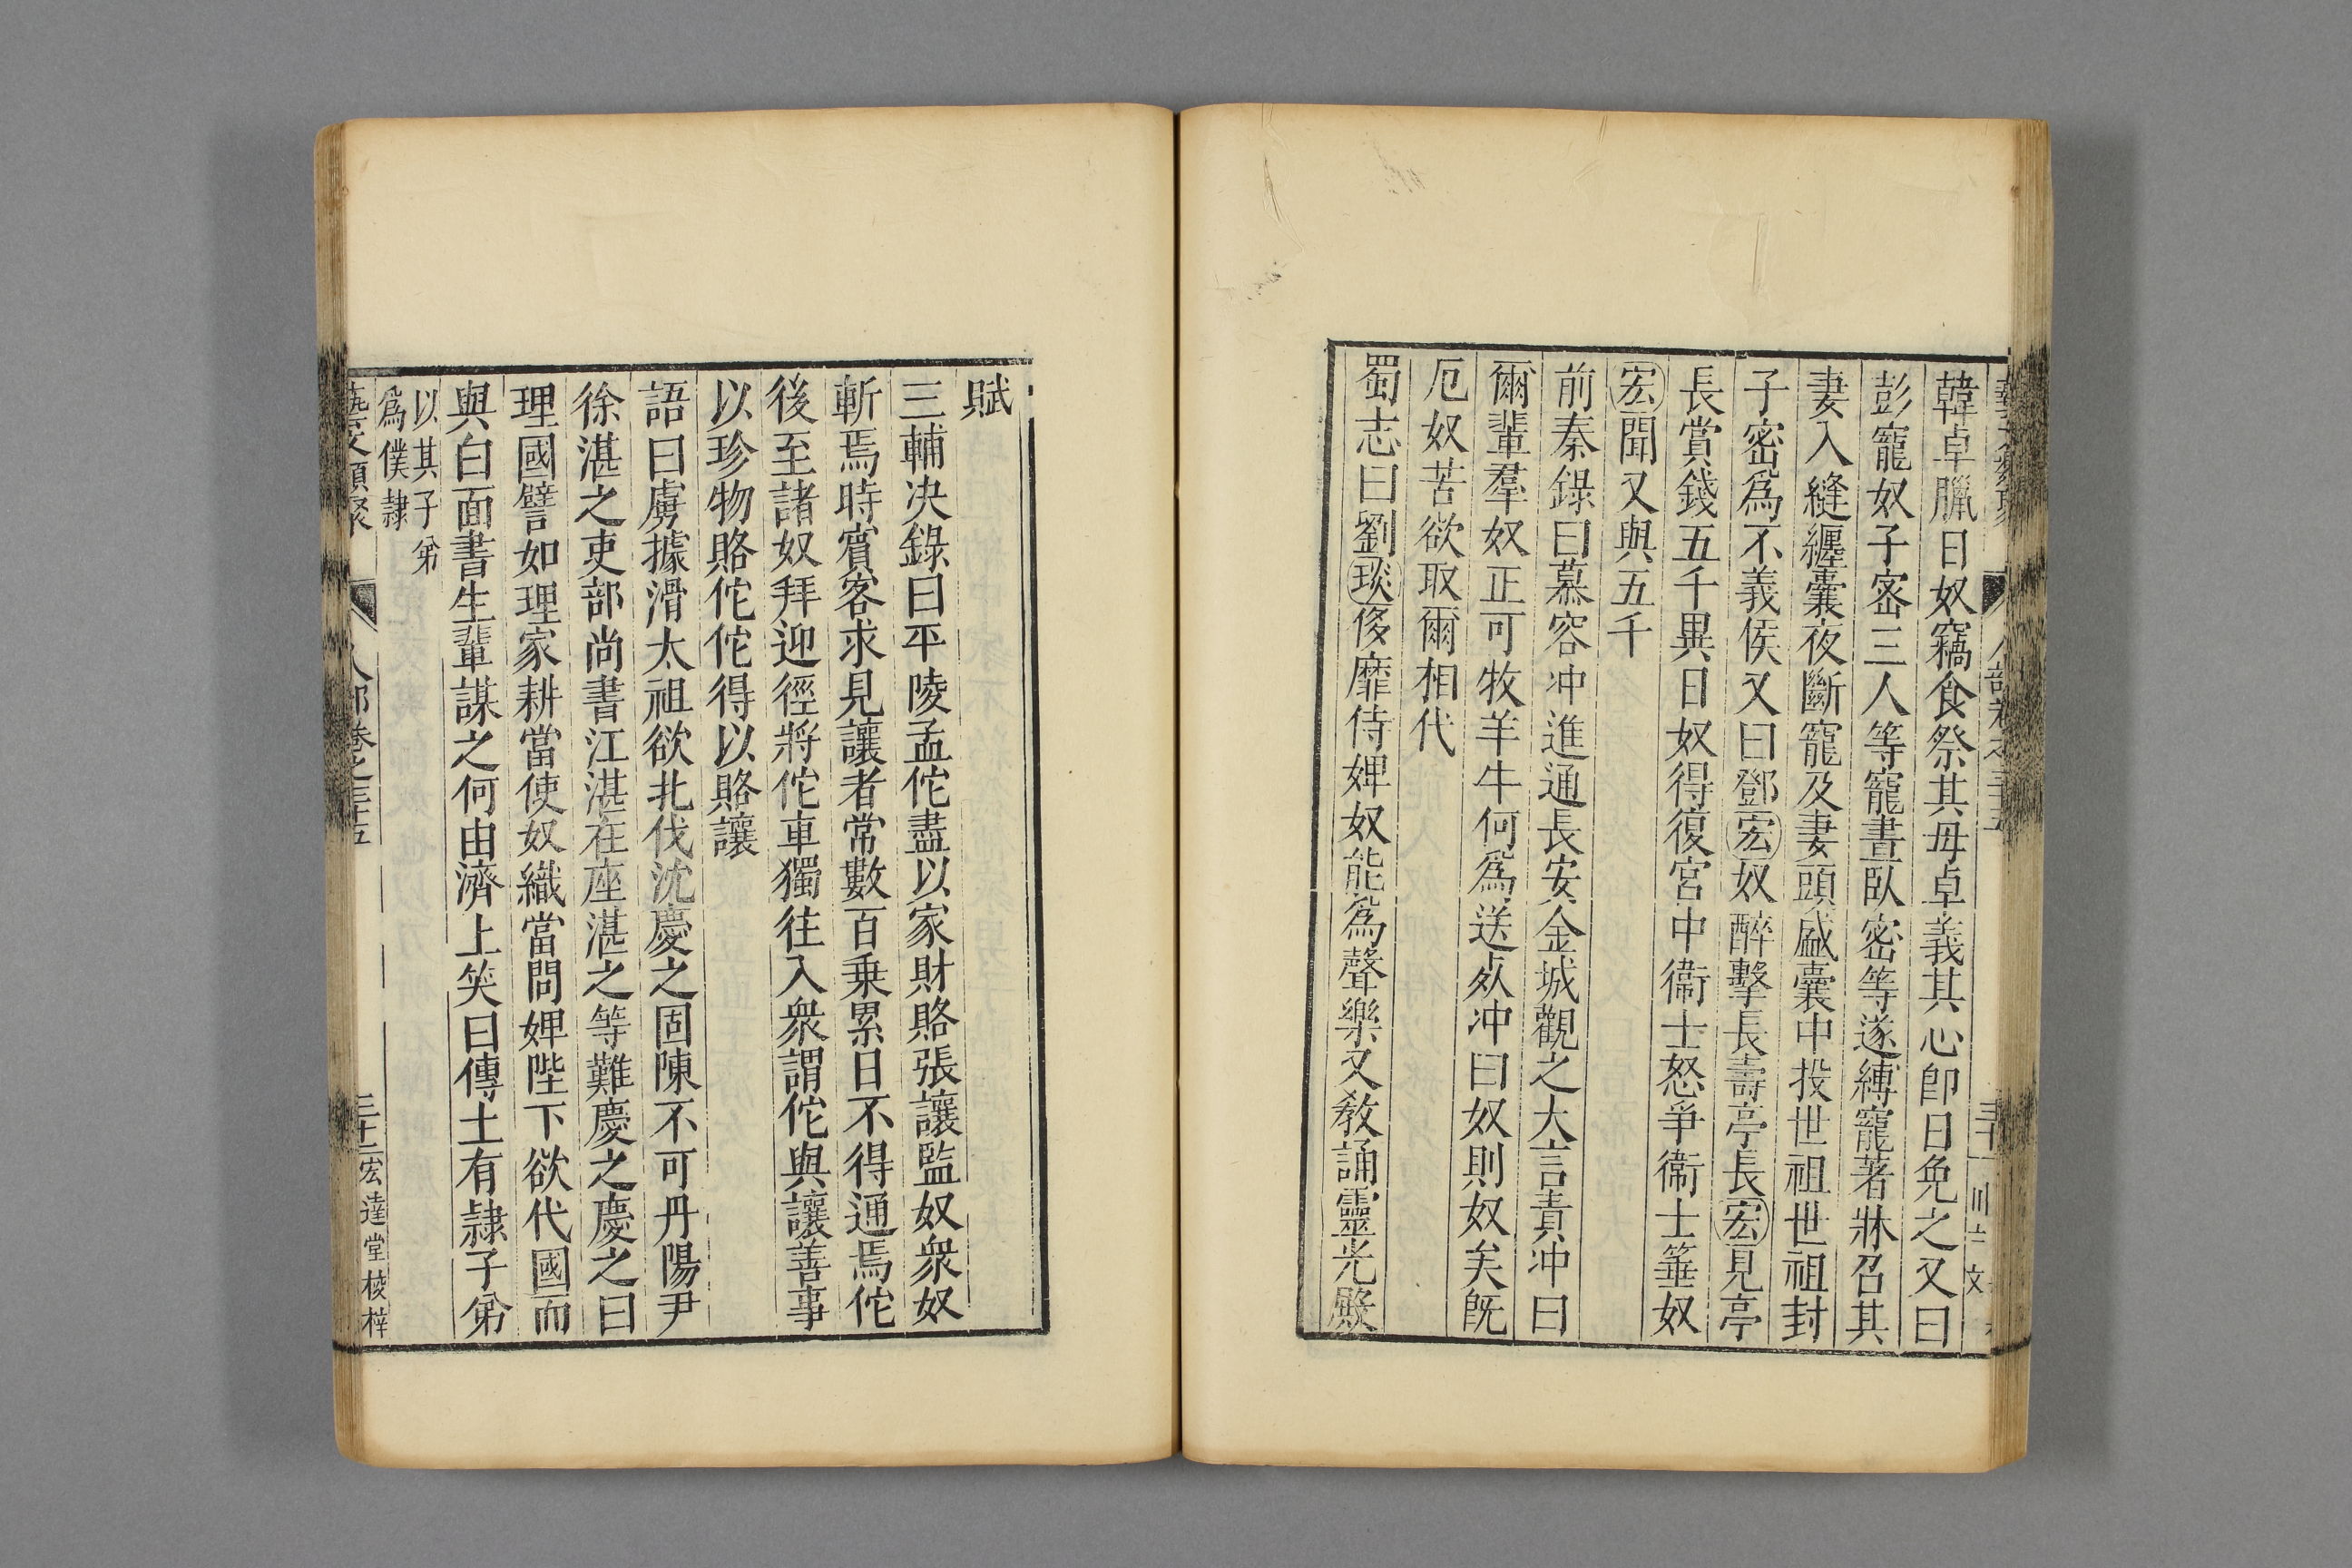 韓卓臘日奴竊食祭其母卓義其心卽日免之又曰
彭寵奴子密三人等寵晝臥密等遂縛寵著牀召其
妻入縫纏囊夜斷寵及妻頭盛囊中投世祖世祖封
子密爲不義侯又曰鄧宏奴醉擊長壽亭長宏見亭
長賞錢五千異日奴得復宮中衞士怒爭衞士箠奴
宏聞又與五千
前秦錄曰慕容冲進通長安金城觀之大言責冲曰
爾輩羣奴正可牧羊牛何爲送死冲曰奴則奴矣旣
厄奴苦欲取爾相代
蜀志曰劉琰侈靡侍婢奴能爲聲樂又敎誦靈光殿
賦
三輔決錄曰平陵孟佗盡以家財賂張讓監奴衆奴
斬焉時賓客求見讓者常數百乗累日不得通焉佗
後至諸奴拜迎徑將佗車獨往入衆謂佗與讓善事
以珍物賂佗佗得以賂讓
語曰虜據滑太祖欲北伐沈慶之固陳不可丹陽尹
徐湛之吏部尚書江湛在座湛之等難慶之慶之曰
理國譬如理家耕當使奴織當問婢陛下欲代國而
與白面書生輩謀之何由濟上笑曰傳土有隷子弟
以其子弟
爲僕隷
藝文類聚 人部卷之三十五 三十二 宏達堂校梓